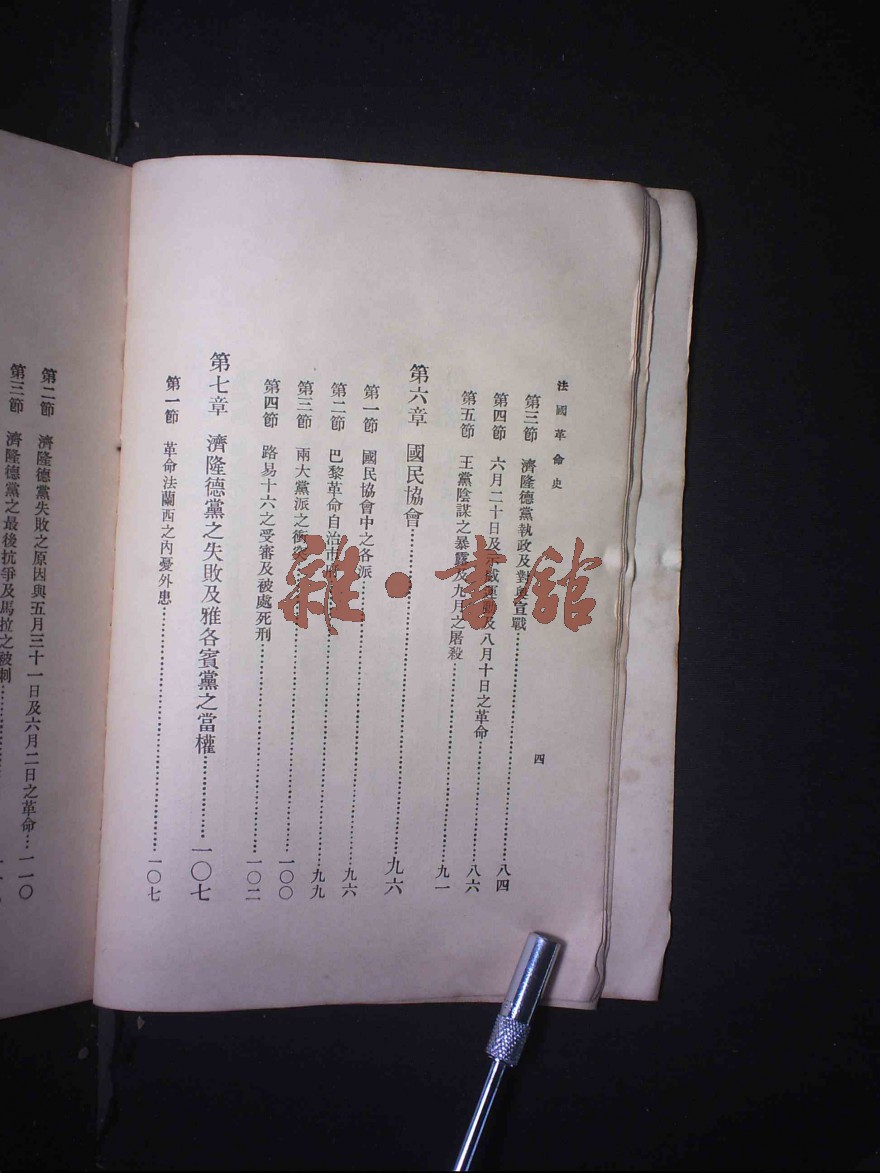 法國革命史
四
第三節 濟隆德黨執政及對奧宣戰……八四
第四節 六月二十日及示威運動及八月十日之革命……八六
第五節 王黨陰謀之暴露及九月之屠殺……九一
第六章 國民協會……九六
第一節 國民協會中之各派……九六
第二節 巴黎革命自治市府……九九
第三節 兩大黨派之衝突……一〇〇
第四節 路易十六之受審及被處死刑……一〇二
第七章 濟隆德黨之失敗及雅各賓黨之當權……一〇七
第一節 革命法蘭西之內憂外患……一〇七
第二節 濟隆德黨失敗之原因與五月三十一日及六月二日之革命……一一〇
第三節 濟隆德黨之最後抗爭及馬拉之被刺……
雜·書館